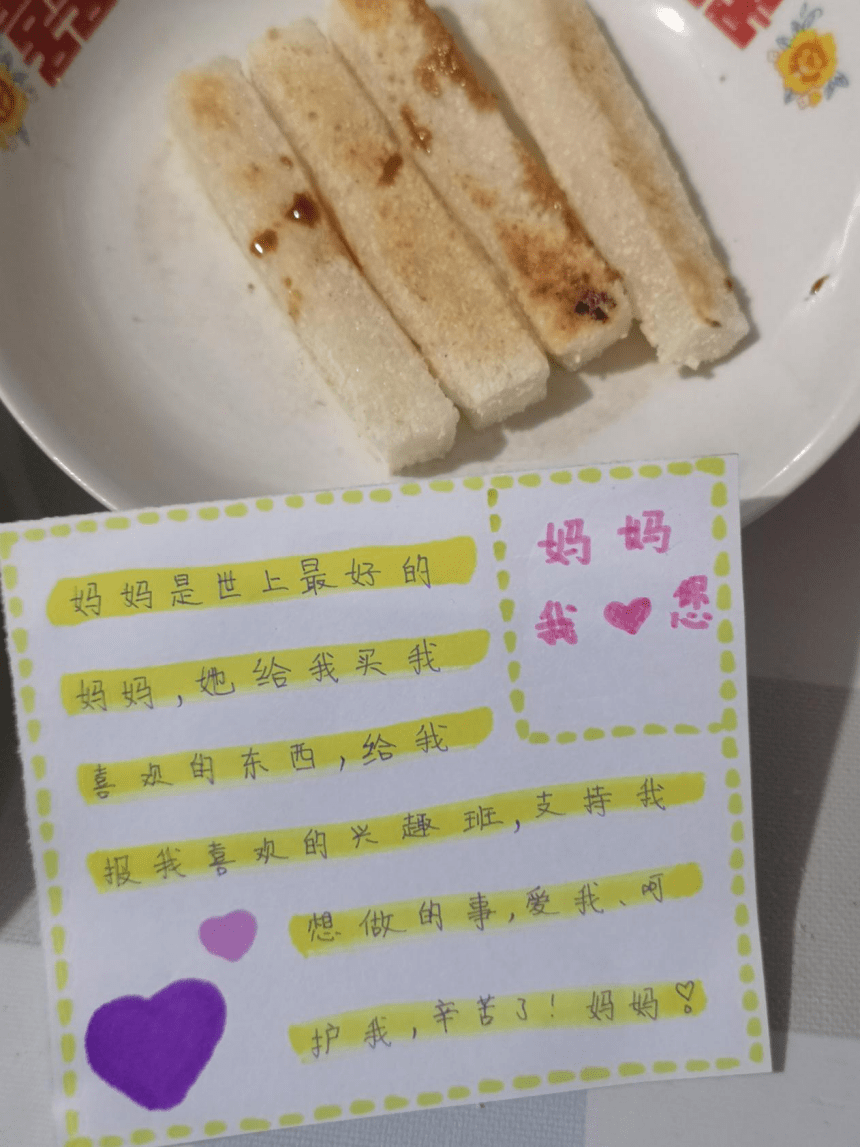 妈妈
我您
妈妈是世上最好的
妈妈,她给我买我
喜欢的东西,给我
报我喜欢的兴趣班,支持我
想做的事,爱我、呵
护我,辛苦了!妈妈